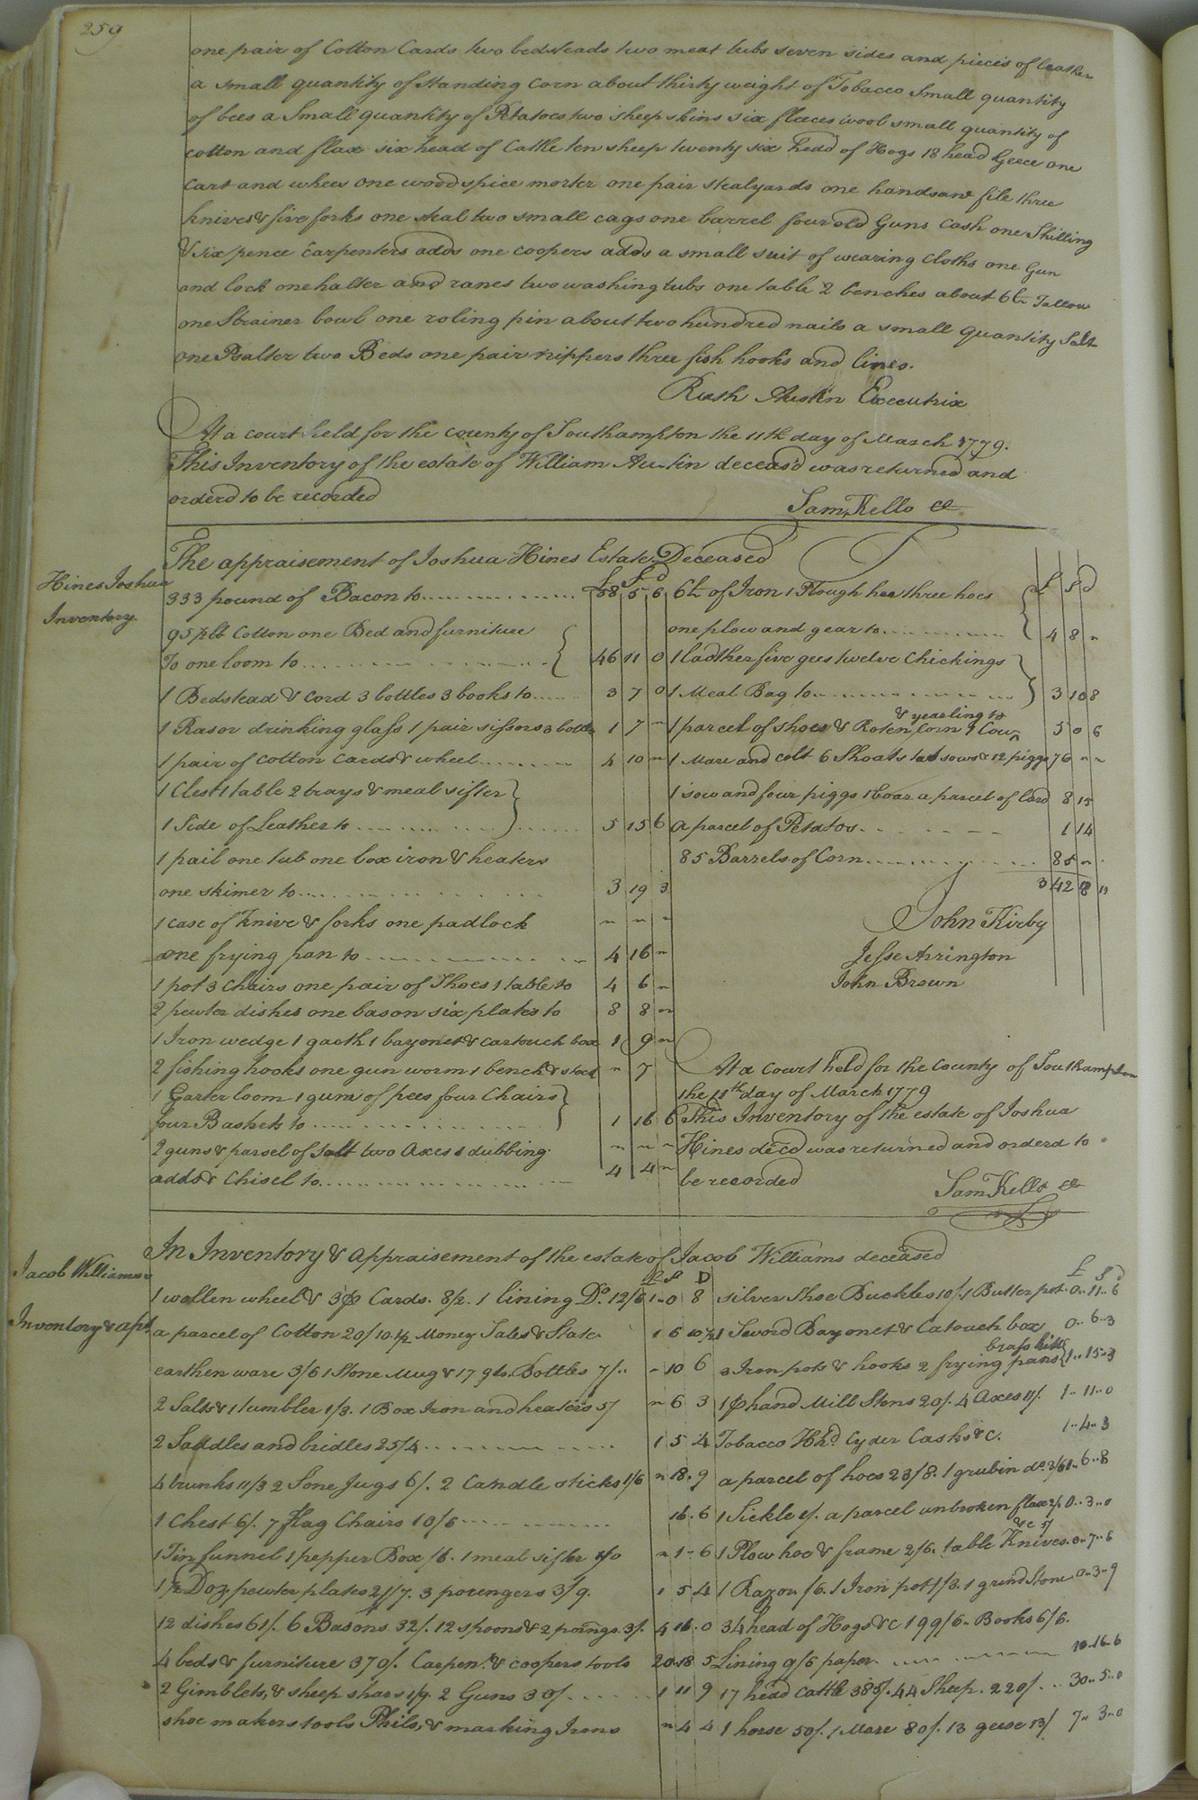 259
one pair of Cotton Cards two bedsteads two meat tubs seven sides and pieces of leather
a small quantity of Standing Corn about thirty weight of Tobacco Small quantity
of bees a Small quantity of Potatoes two sheep skins six fleeces wool small quantity of
cotton and flax six head of Cattle ten sheep twenty six head of Hogs 18 head Geece one
Cart and whees one wood spice morter one pair stealyards one handsaw file three
knives & five forks one steal two small cags one barrel four old Guns Cash one Shilling
& six pence Carpenters adds one coopers adds a small suit of wearing Cloths one Gun
and lock one halter and ranes two washing tubs one table 2 benches about 6 lb Tallow
one Strainer bowl one roling pin about two hundred nails a small quantity Salt
one Psalter two Beds one pair nippers three fish hooks and lines.
Ruth Austin Executrix
At a court held for the county of Southampton the 11th day of March 1779.
This Inventory of the estate of William Austin deceas'd was returned and
orderd to be recorded
Sam Kello
The appraisement of Joshua Hines Estate Deceased
Hines Joshua
Inventory.
£ S d
333 pound of Bacon to 58 5 6
95 lb Cotton one Bed and furniture
To one loom to 46 11 0
1 Bedstead & Cord 3 bottles 3 books to 3 7 0
1 Rasor drinking glass 1 pair sissors 3 bottles 1 7 "
1 pair of Cotton Cards & wheel 4 10 "
1 Chest 1 table 2 trays & meal sifter
1 Side of Leather to 5 15 6
1 pail one tub one box iron & heaters
one skimer to 3 19 3
1 case of knive & forks one padlock " " "
one frying pan to 4 16 "
1 pot 3 Chairs one pair of Shoes 1 table to 4 6 "
2 pewter dishes one bason six plates to 8 8 "
1 Iron wedge 1 1 bayonet & cartouch box 1 9 "
2 fishing hooks one gun worm 1 bench & stock " 7
1 Garter loom 1 of pees four Chairs
four Baskets to 1 16 6
2 guns & parsel of Salt two Axes 1 dubbing " " "
adds & Chisel to 4 4 "
£ S d
6 lb of Iron 1 Plough hoe three hoes
one plow and gear to 4 8 "
1 five gees twelve Chickings
1 Meal Bag to 3 10 8
& yearling to
1 parcel of shoes & Roten Corn 1 Cow 5 0 6
1 Mare and colt 6 Shoats two sows & 12 piggs 76 " "
1 sow and four piggs 1 boar a parcel of lard 8 15
a parcel of Petatos 1 14
85 Barrels of Corn 85 "
342 8 11
John Kirby
Jesse Arrington
John Brown
At a Court held for the County of Southampton
the 11th day of March 1779
This Inventory of the estate of Joshua
Hines decd was returned and orderd to
be recorded
Sam Kello
An Inventory & Appraisement of the estate of Jacob Williams deceased
Jacob Williams
Inventory & apt
£ S D
1 wollen wheel & 3 p Cards. 8/2. 1 lining Do. 12/6 1 " 0 8
a parcel of Cotton 20/10 1/2 Money Sales & Slate 1 6 10 1/2
earthen ware 3/6 1 Stone Mug & 17 qts Bottles 7/.. " 10 6
2 Salts & 1 tumbler 1/3. 1 Box Iron and heaters 5/ " 6 3
2 Saddles and bridles 25/4 1 5 4
4 trunks 11/3 2 Sone Jugs 6/. 2 Candle sticks 1/6 " 18. 9
1 Chest 6/. 7 flag Chairs 10/6 16. 6
1 Tin funnel 1 pepper Box /6. 1 meal sifter 1/0 " 1 - 6
1 1/2 Doz pewter plates 21/7. 3 porengers 3/9. 1 5 4
12 dishes 61/. 6 Basons 32/. 12 spoons & 2 3/. 4 16. 0
4 beds & furniture 370/. Carpen.s & coopers tools 20 18 5
2 Gimblets, & sheep shars 1/9. 2 Guns 30/. 1 11 9
shoe makers tools Phils, & marking Irons " 4 4
£ S d
silver Shoe Buckles 10/. 1 Butter pot 0.. 11 .. 6
1 Sword Bayonet & Catouch box 0 .. 6 .. 3
brass kittle
3 Iron pots & hooks 2 frying pans 1 .. 15 .. 3
1 p hand Mill Stons 20/. 4 Axes 11/. 1 .. 11 .. 0
Tobacco Hhd Cyder Casks &C. 1 .. 4 .. 3
a parcel of hoes 23/8. 1 grubin do. 3/ 1 .. 6 .. 8
1 Sickle 1/. a parcel unbroken flax 2/. 0 .. 3 .. 0
&c 5/
1 Plow hoe & frame 2/6. table Knives. 0 .. 7 .. 6
1 Razon /6. 1 Iron pot 1/3. 1 grind Stone 0 .. 3 .. 9
34 head of Hogs &c 199/6. Books 6/6.
Lining 9/6 paper 10 .. 16 .. 6
17 head Cattle 385/. 44 Sheep. 220/. .. 30 .. 5 .. 0
1 horse 50/. 1 Mare 80/. 13 geese 13/ 7 .. 3 .. 0